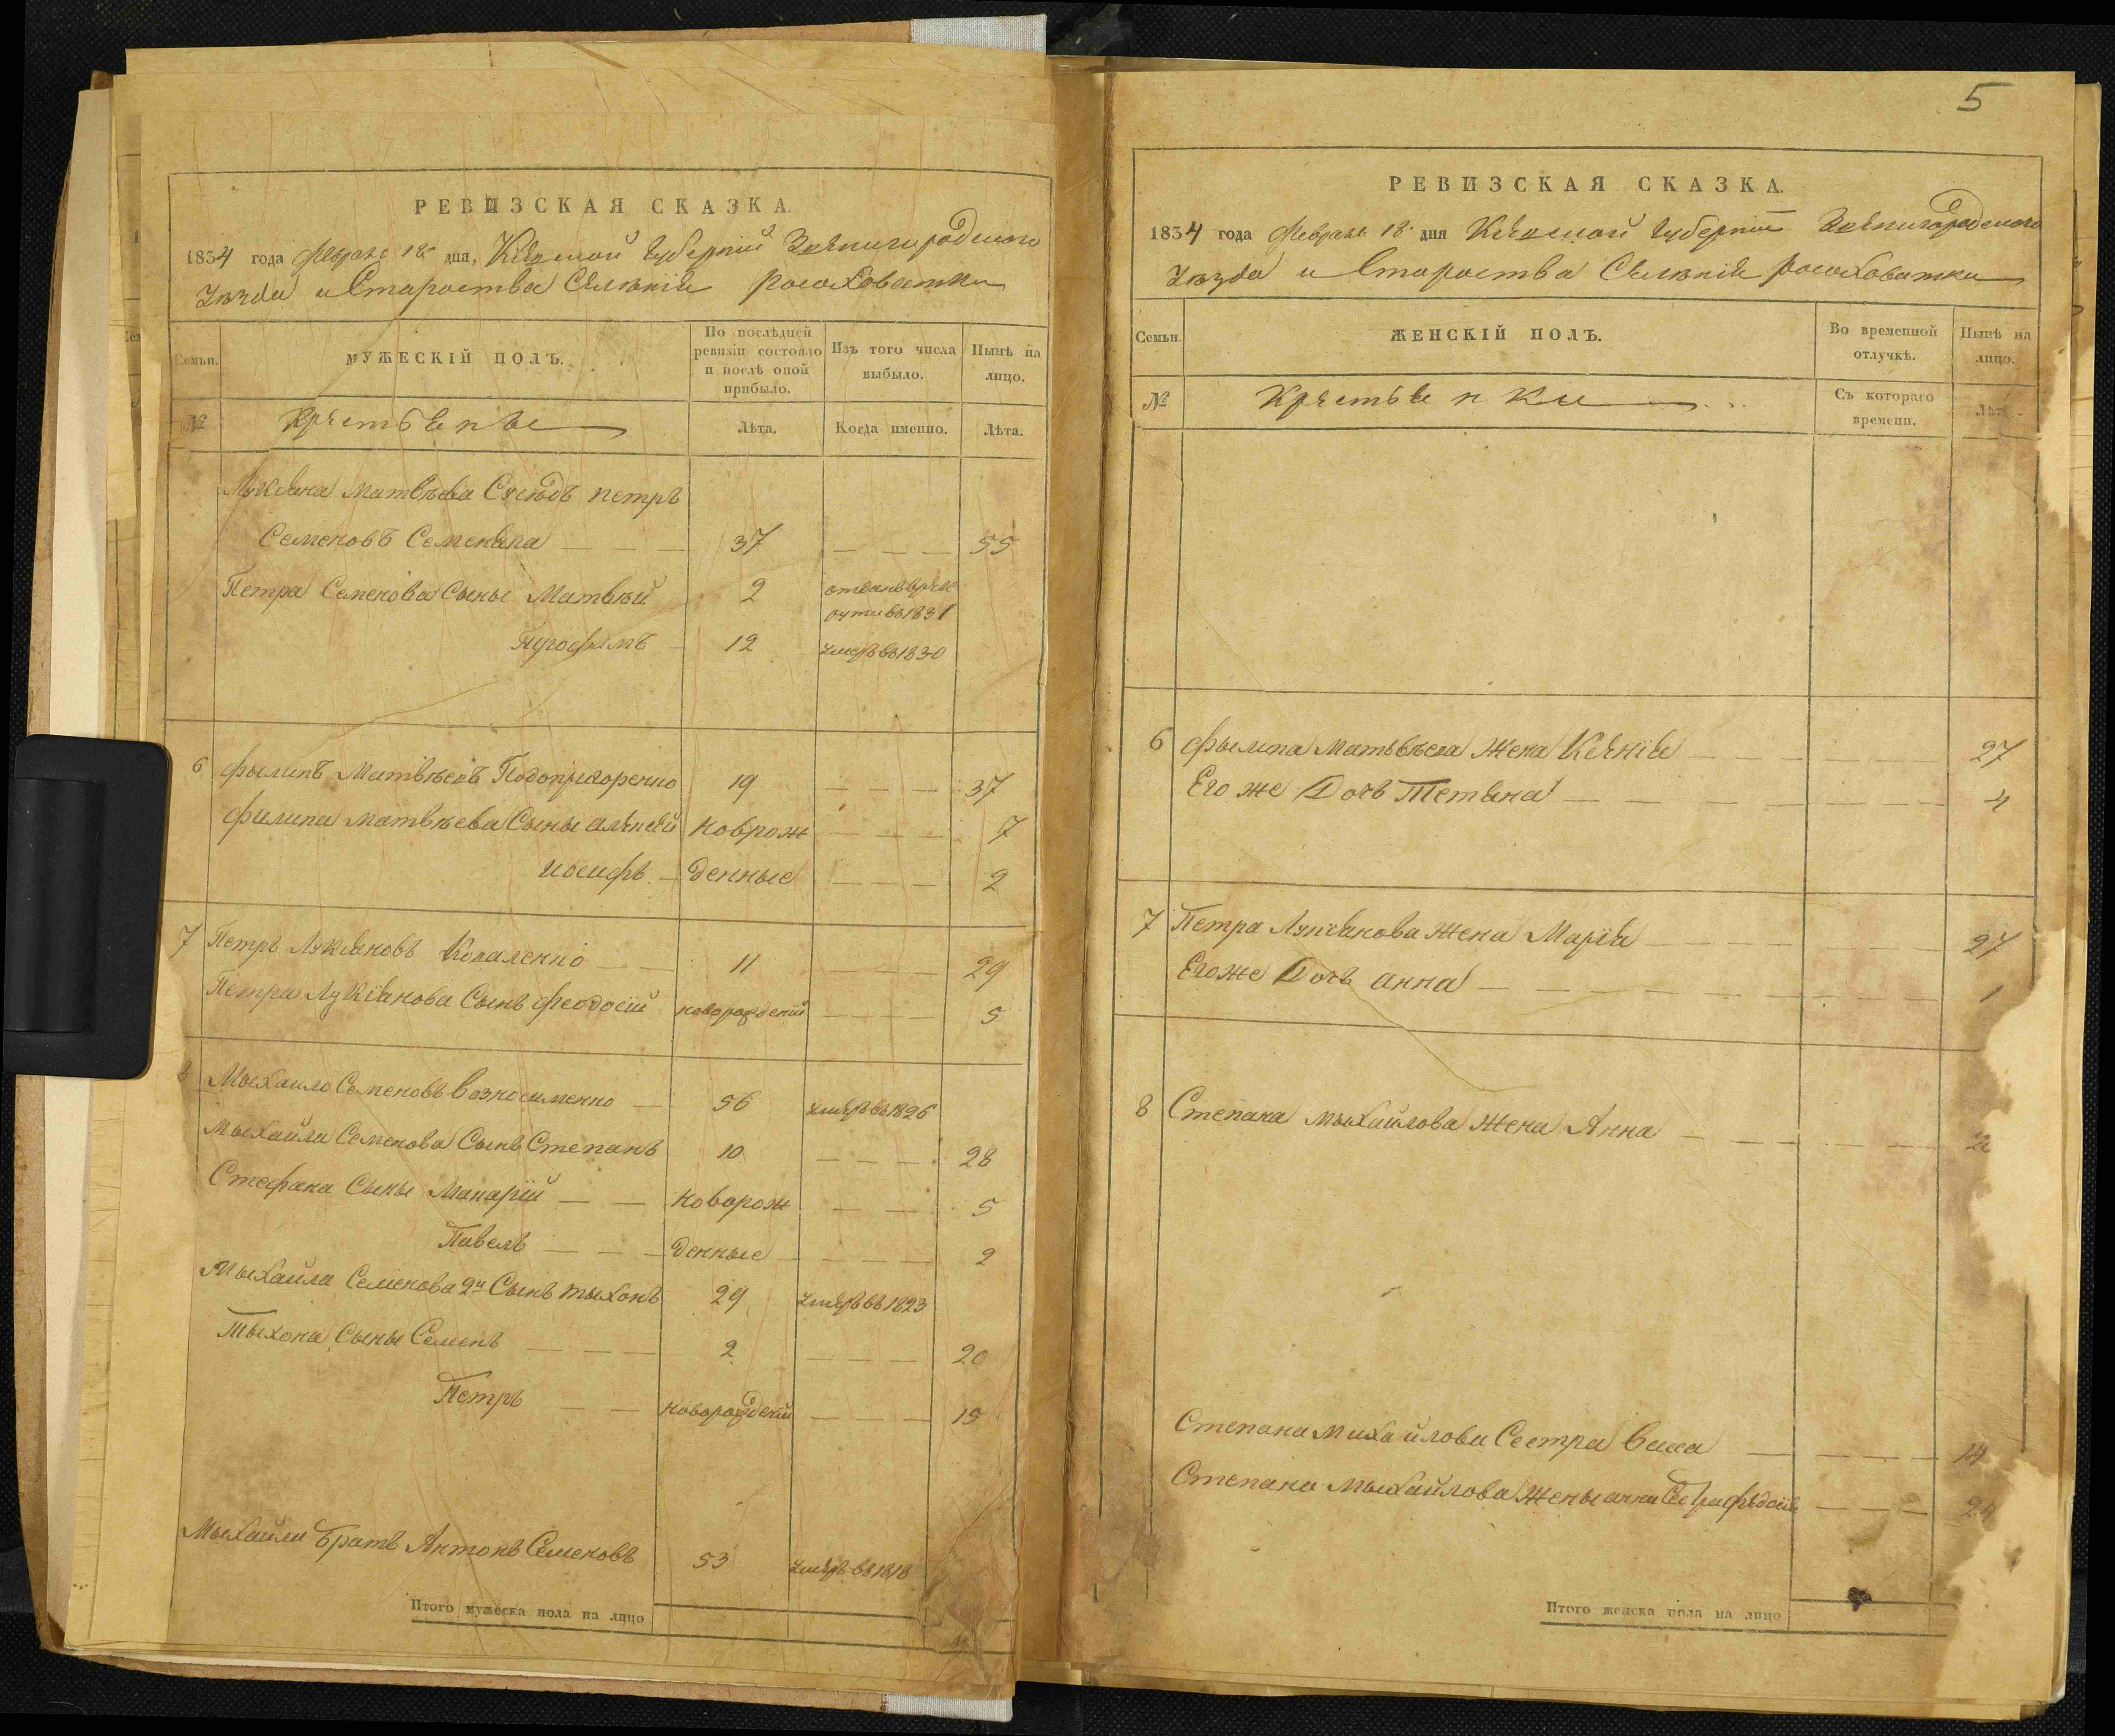 РЕВИЗСКАЯ СКАЗКА.
1834 года Февраля 18 дня, Кіевской Губерніи Звенигородского
Уезда и Староства Селенія Росоховатки
Семьи. МУЖЕСКІЙ ПОЛЪ. По послѣдней ревизіи состояло и послѣ оной прибыло. Изъ того числа выбыло. Нынѣ на лицо.
№ Крестьяне Лѣта. Когда именно. Лѣта.
Лукіяна Матвѣева Сусѣдъ петръ
Семеновъ 37 — — — 55
Петра Семенова Сыны Матвѣй 2 отданъ врек
рути въ 1831
12 умеръ въ 1830
6 Филипъ Матвѣевъ Подопригоренко 19 — — — 37
Филипа Матвѣева Сыны алексей новрож — — — 7
иосифъ — денные — — — 2
7 Петръ Лукіяновъ Коваленко — — 11 — — — 29
Петра Лукіянова Сынъ феодосій новорожденій — — — 5
8 Мыхаило Семеновъ — 56 умеръ въ 1826
Мыхайла Семенова Сынъ Степанъ 10 — — — 28
Стефана Сыны Макарій — — новорож — — — 5
Павелъ — — — денные — — — 2
Мыхайла Семенова 2й Сынъ тыхонъ 29 умеръ въ 1823
Тыхона Сыны Семенъ — — — 2 — — — 20
Петръ — — новорожденій — — — 15
Мыхайла Братъ Антонъ Семеновъ 53 умеръ въ 1818
Итого мужеска пола на лицо
5
РЕВИЗСКАЯ СКАЗКА.
1834 года Февраля 18 дня Кіевской Губерніи Звенигородского
Уезда и Староства Селенія Росоховатки
Семьи. ЖЕНСКІЙ ПОЛЪ. Во временной отлучкѣ. Нынѣ на лицо.
№ Крестьянки Съ котораго времени. Лѣта
6 Фылипа Матьвѣева Жена Ксѣнія — — — 27
Его же Дочь Тетяна — — — 4
7 Петра Лукіанова Жена Марія — — — 27
Егоже Дочь анна — — — 1
8 Степана Мыхайлова Жена Анна — — —
Степана михайлова Сестра Васа — — — 14
Степана Мыхайлова Жены анны Сестра феодосія — — — 24
Итого женска пола на лицо